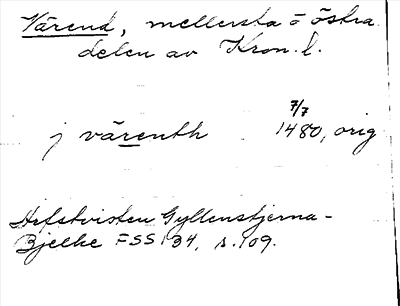 Värend, mellersta o östra
delen av Kron. l.
7/7
j värenth 1480, orig
Arfstvisten Gyllenstjerna-
Bjelke FSS 34, s. 109.